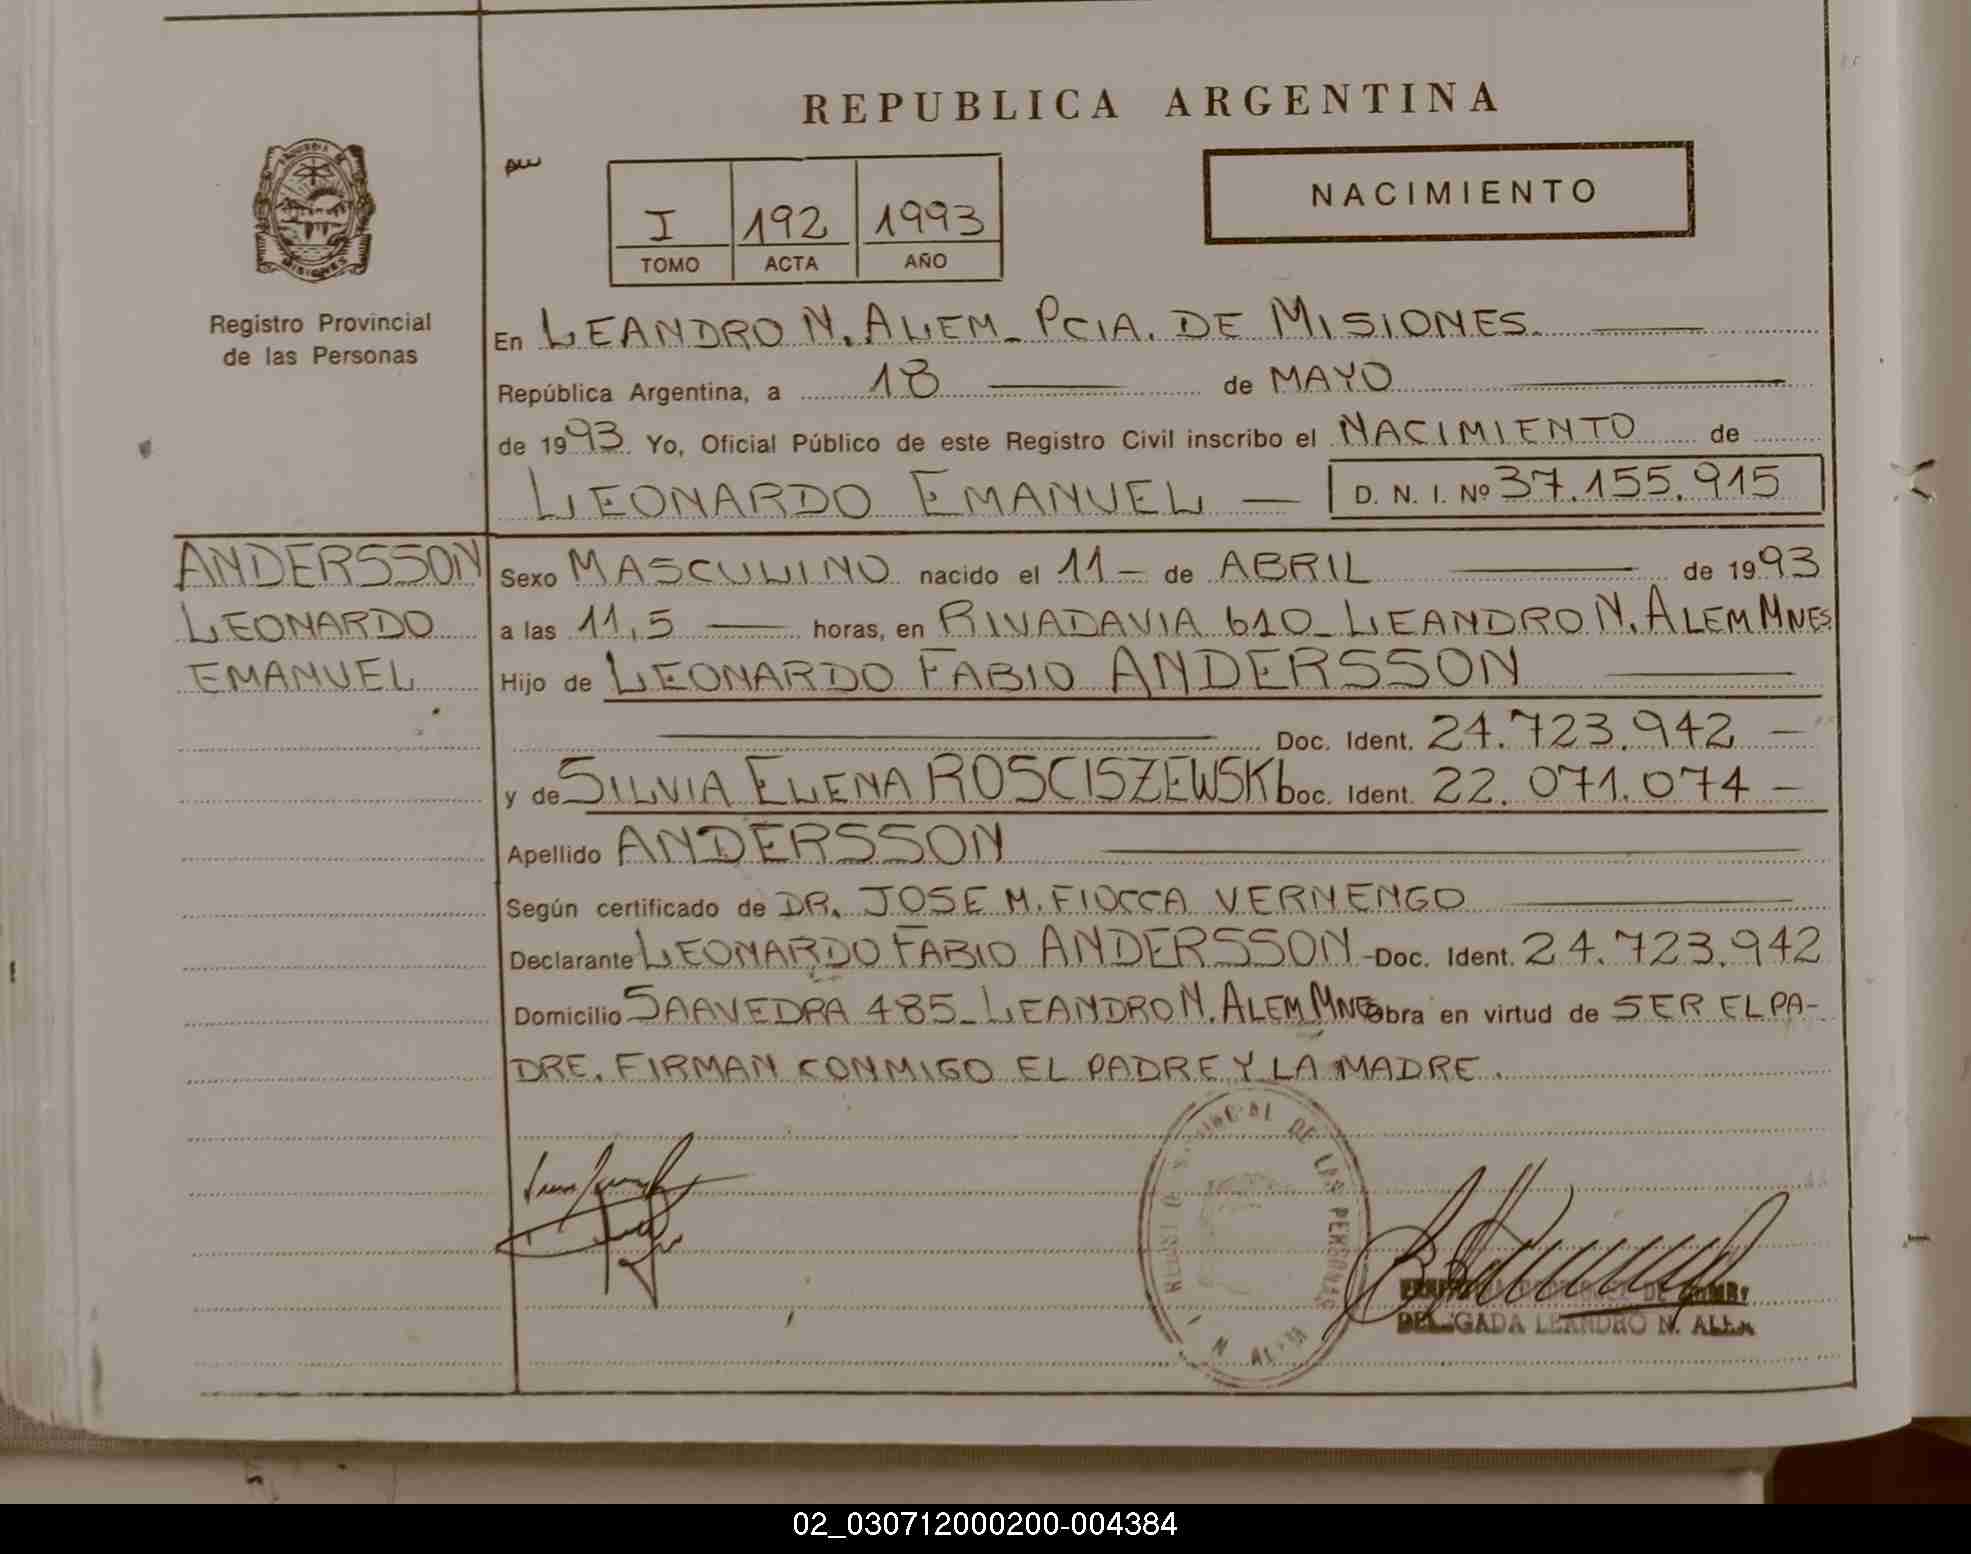 REPUBLICA ARGENTINA
NACIMIENTO
I 192 1993
TOMO ACTA AÑO
MISIONES
Registro Provincial
de las Personas
En LEANDRO N. ALEM - PCIA. DE MISIONES.
República Argentina, a 18 de MAYO
de 1993. Yo, Oficial Público de este Registro Civil inscribo el NACIMIENTO de
LEONARDO EMANUEL — D. N. I. Nº 37.155.915
ANDERSSON
LEONARDO
EMANUEL
Sexo MASCULINO nacido el 11 - de ABRIL de 1993
a las 11,5 horas, en RIVADAVIA 610 - LEANDRO N. ALEM MNES
Hijo de LEONARDO FABIO ANDERSSON
Doc. Ident. 24.723.942 -
y de SILVIA ELENA ROSCISZEWSKI Doc. Ident. 22.071.074 -
Apellido ANDERSSON
Según certificado de DR. JOSE M. FIOCCA VERNENGO
Declarante LEONARDO FABIO ANDERSSON - Doc. Ident. 24.723.942
Domicilio SAAVEDRA 485 - LEANDRO N. ALEM MNES obra en virtud de SER EL PA-
DRE. FIRMAN CONMIGO EL PADRE Y LA MADRE.
DE LAS PERSONAS
DELEGADA LEANDRO N. ALEM
02_030712000200-004384